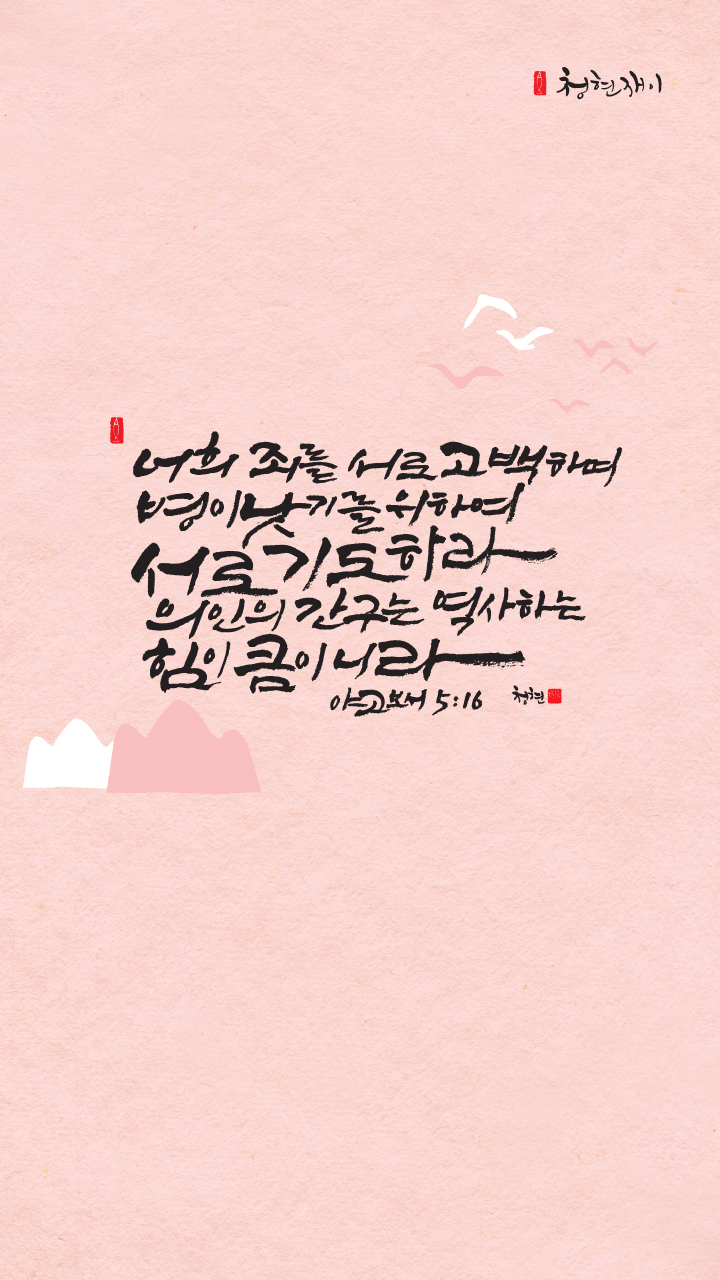 청현재이
너희 죄를 서로 고백하며
병이 낫기를 위하여
서로 기도하라
의인의 간구는 역사하는
힘이 큼이니라
야고보서 5:16 청현